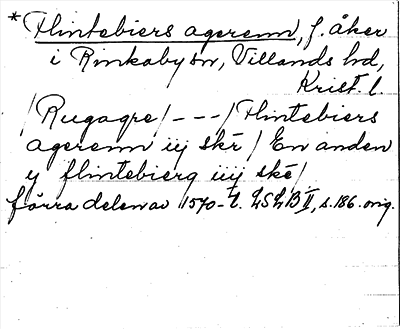 * Flintebiers agerenn, f. åker
i Rinkaby sn, Villands hd,
Krist. l.
/Rugagre/ - - - / Flintebiers
agerenn iij skè / En anden
y flintebierg iiij skè /
förra delen av 1570-t. LSLB II, s. 186. orig.